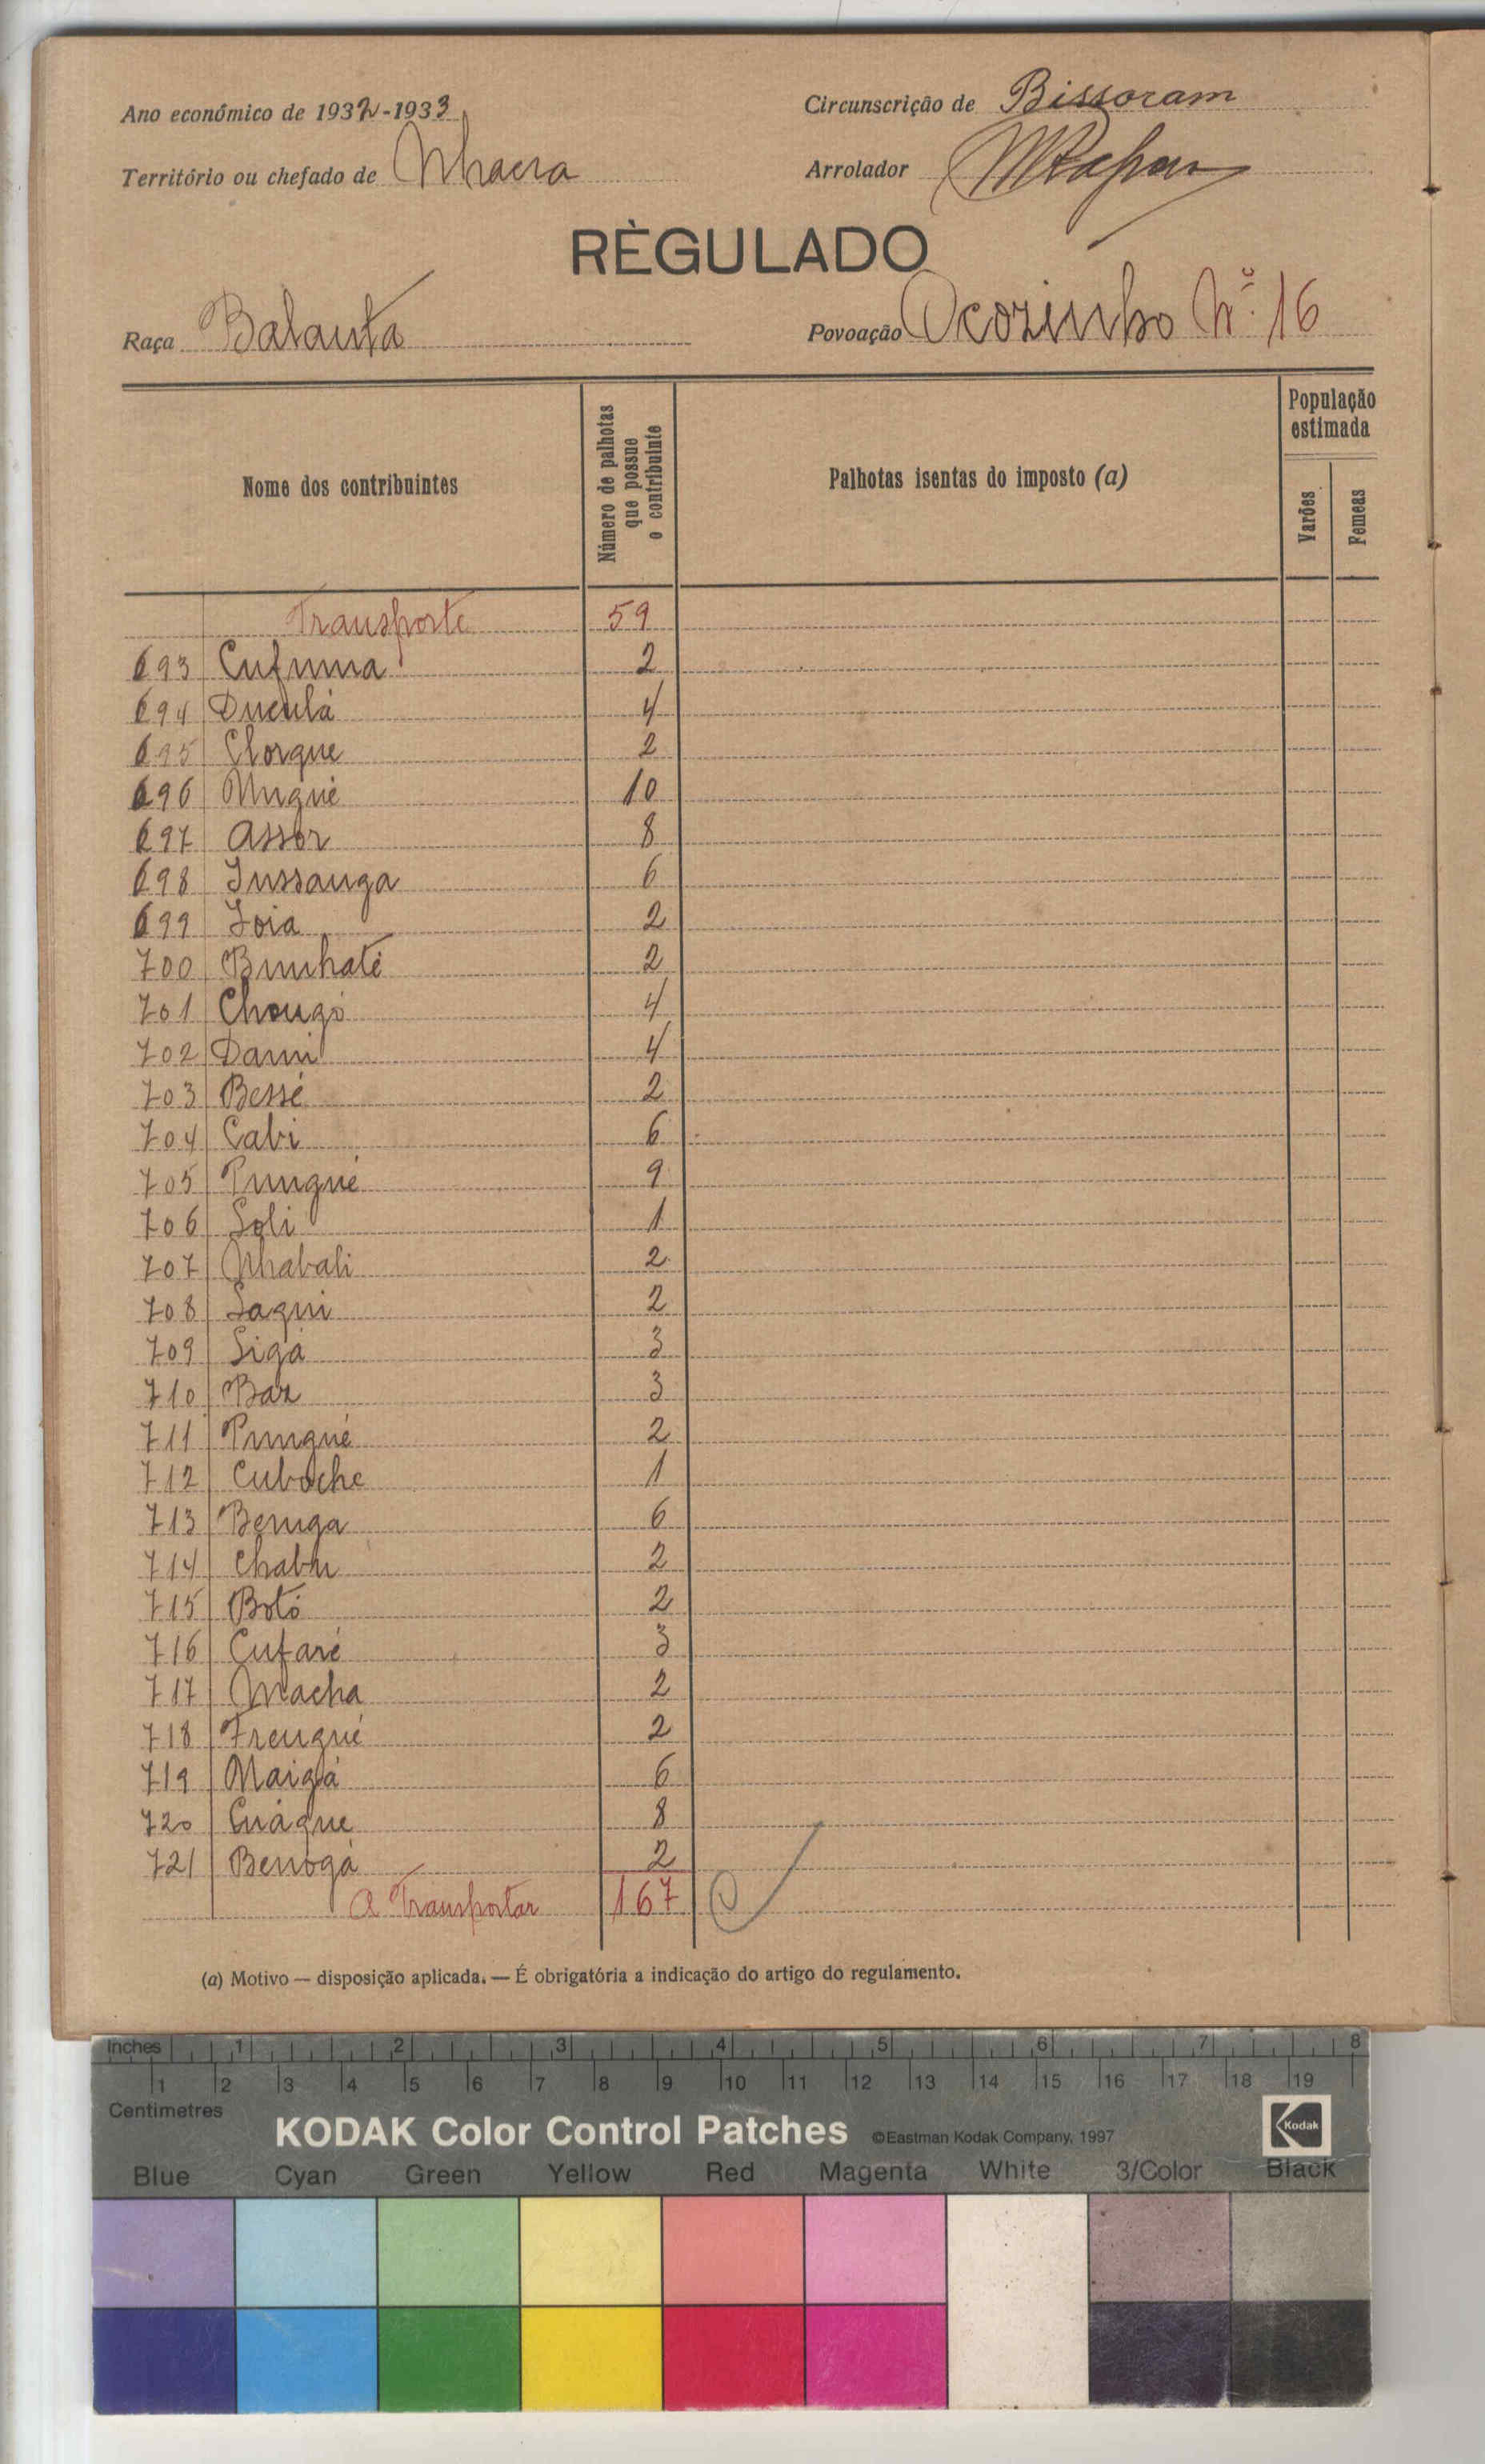 Ano económico de 1932-1933
Circunscrição de Bissoram
Território ou chefado de Nhaera
Arrolador
RÈGULADO
Raça Balanta
Povoação Ocozinho Nº 16
Nome dos contribuintes
Número de palhotas que possue o contribuinte
Palhotas isentas do imposto (a)
População estimada
Varões
Femeas
Transporte 59
693 Cufuma 2
694 Ducula 4
695 Clorque 2
696 Unqué 10
697 Assor 8
698 Jussanga 6
699 Joia 2
700 Binhaté 2
701 Chougó 4
702 Dami 4
703 Bessé 2
704 Cabi 6
705 Pungué 9
706 Soli 1
707 Nhabali 2
708 Saqui 2
709 Sigá 3
710 Baz 3
711 Pungué 2
712 Cuboche 1
713 Benuga 6
714 Chabu 2
715 Botó 2
716 Cufaré 3
717 Macha 2
718 Frengué 2
719 Naigá 6
720 Cuáque 8
721 Benogá 2
A Transportar 167
(a) Motivo — disposição aplicada. — É obrigatória a indicação do artigo do regulamento.
Inches 1 2 3 4 5 6 7 8
1 2 3 4 5 6 7 8 9 10 11 12 13 14 15 16 17 18 19
Centimetres
KODAK Color Control Patches ©Eastman Kodak Company, 1997 Kodak
Blue Cyan Green Yellow Red Magenta White 3/Color Black